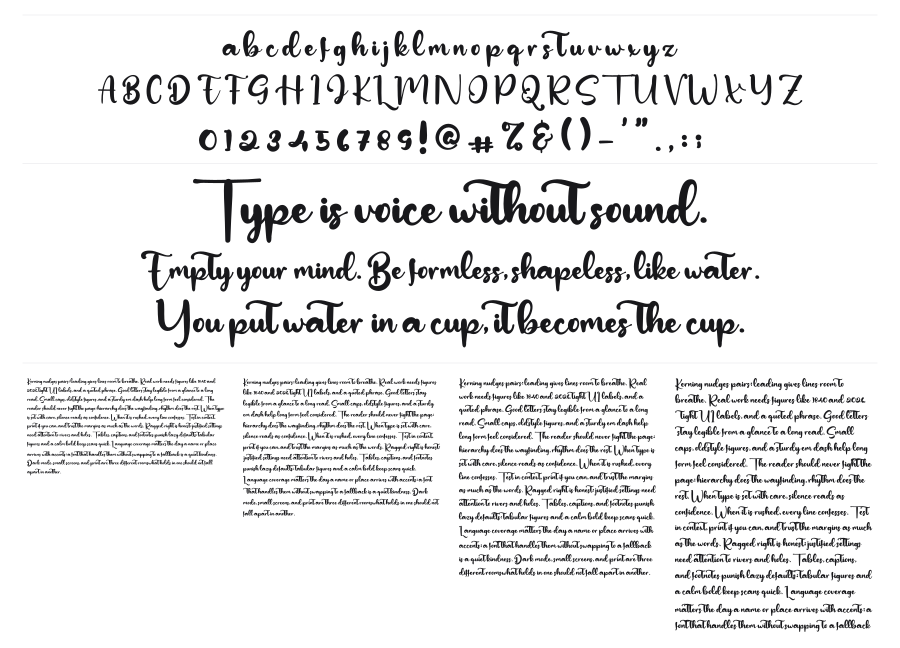 abcdefghijklmnopqrstuvwxyz
ABCDEFGHIJKLMNOPQRSTUVWXYZ
0123456789!@#%&()-'".,:;
Type is voice without sound.
Empty your mind. Be formless, shapeless, like water.
You put water in a cup, it becomes the cup.
Kerning nudges pairs; leading gives lines room to breathe. Real work needs figures like 1640 and
2026, tight UI labels, and a quoted phrase. Good letters stay legible from a glance to a long
read. Small caps, oldstyle figures, and a sturdy em dash help long form feel considered. The
reader should never fight the page; hierarchy does the wayfinding, rhythm does the rest. When type
is set with care, silence reads as confidence. When it is rushed, every line confesses. Test in context,
print if you can, and trust the margins as much as the words. Ragged right is honest; justified settings
need attention to rivers and holes. Tables, captions, and footnotes punish lazy defaults; tabular
figures and a calm bold keep scans quick. Language coverage matters the day a name or place
arrives with accents; a font that handles them without swapping to a fallback is a quiet kindness.
Dark mode, small screens, and print are three different rooms; what holds in one should not fall
apart in another.
Kerning nudges pairs; leading gives lines room to breathe. Real work needs figures
like 1640 and 2026, tight UI labels, and a quoted phrase. Good letters stay
legible from a glance to a long read. Small caps, oldstyle figures, and a sturdy
em dash help long form feel considered. The reader should never fight the page;
hierarchy does the wayfinding, rhythm does the rest. When type is set with care,
silence reads as confidence. When it is rushed, every line confesses. Test in context,
print if you can, and trust the margins as much as the words. Ragged right is honest;
justified settings need attention to rivers and holes. Tables, captions, and footnotes
punish lazy defaults; tabular figures and a calm bold keep scans quick.
Language coverage matters the day a name or place arrives with accents; a font
that handles them without swapping to a fallback is a quiet kindness. Dark
mode, small screens, and print are three different rooms; what holds in one should not
fall apart in another.
Kerning nudges pairs; leading gives lines room to breathe. Real
work needs figures like 1640 and 2026, tight UI labels, and a
quoted phrase. Good letters stay legible from a glance to a long
read. Small caps, oldstyle figures, and a sturdy em dash help
long form feel considered. The reader should never fight the page;
hierarchy does the wayfinding, rhythm does the rest. When type is
set with care, silence reads as confidence. When it is rushed, every
line confesses. Test in context, print if you can, and trust the margins
as much as the words. Ragged right is honest; justified settings need
attention to rivers and holes. Tables, captions, and footnotes punish
lazy defaults; tabular figures and a calm bold keep scans quick.
Language coverage matters the day a name or place arrives with
accents; a font that handles them without swapping to a fallback
is a quiet kindness. Dark mode, small screens, and print are three
different rooms; what holds in one should not fall apart in another.
Kerning nudges pairs; leading gives lines room to
breathe. Real work needs figures like 1640 and 2026,
tight UI labels, and a quoted phrase. Good letters
stay legible from a glance to a long read. Small
caps, oldstyle figures, and a sturdy em dash help long
form feel considered. The reader should never fight the
page; hierarchy does the wayfinding, rhythm does the
rest. When type is set with care, silence reads as
confidence. When it is rushed, every line confesses. Test
in context, print if you can, and trust the margins as much
as the words. Ragged right is honest; justified settings
need attention to rivers and holes. Tables, captions,
and footnotes punish lazy defaults; tabular figures and
a calm bold keep scans quick. Language coverage
matters the day a name or place arrives with accents; a
font that handles them without swapping to a fallback